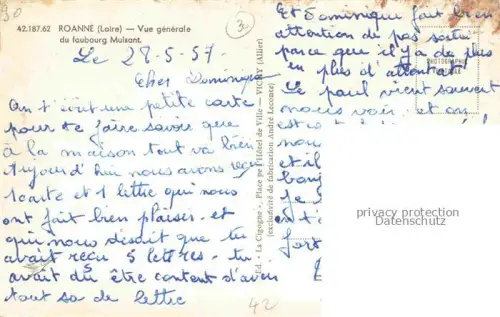 30
42.187.62 ROANNE (Loire) — Vue générale
du faubourg Mulsant.
3
Le 28-5-57
Cher Dominique
On t'écrit une petite carte
pour te faire savoir que
à la maison tout va bien
aujourd'hui nous avons reçu
1 carte et 1 lettre qui nous
ont fait bien plaisir. et
qui nous disait que tu
avait reçu 5 lettres. tu
avait du être content d'avoir
tout sa de lettre
Ed. « La Cigogne », Place de l'Hôtel de Ville — VICHY (Allier)
(exclusivité de fabrication André Leconte)
42
Et Dominique fait bien
attention de pas sortir
parce que il y a de plus
en plus d'attentat
PHOTOGRAPHIE
Le paul vient souvent
nous voir et on
est
nous
et il
bonj
je
on t'
fort
privacy protection
Datenschutz